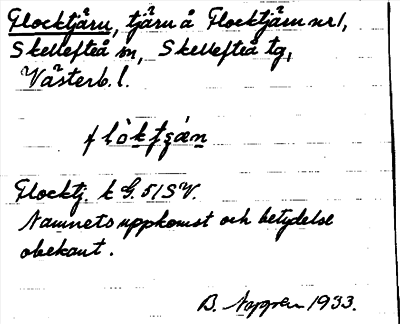 Flocktjärn, tjärn å Flocktjärn nr 1,
Skellefteå sn, Skellefteå tg,
Västerb. l.
Flocktj. k G. 51 SV.
Namnets uppkomst och betydelse
obekant.
B. Nygren 1933.